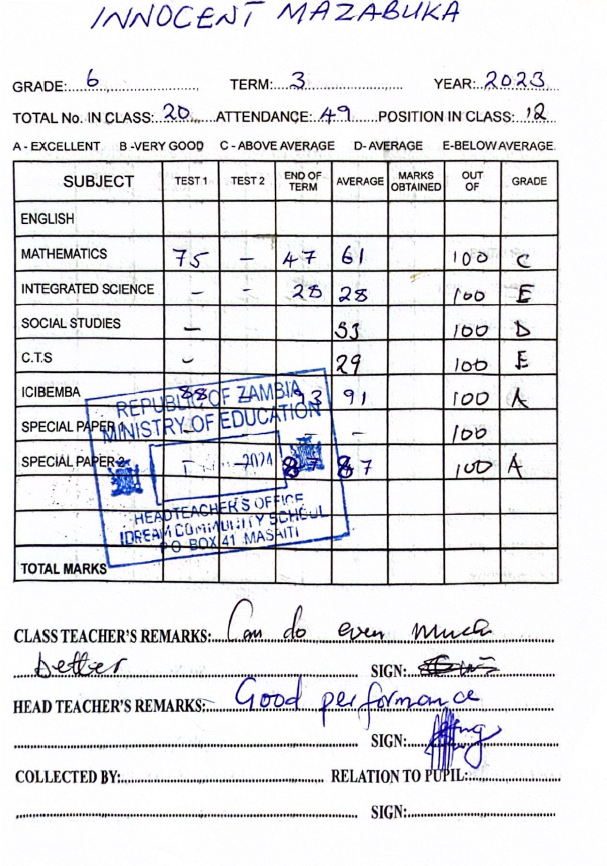 INNOCENT MAZABUKA
GRADE:...6... TERM:...3... YEAR:..2023
TOTAL No. IN CLASS:..20...ATTENDANCE:..49...POSITION IN CLASS:..12
A - EXCELLENT B -VERY GOOD C - ABOVE AVERAGE D- AVERAGE E-BELOW AVERAGE.
SUBJECT TEST 1 TEST 2 END OF TERM AVERAGE MARKS OBTAINED OUT OF GRADE
ENGLISH
MATHEMATICS 75 - 47 61 100 C
INTEGRATED SCIENCE - - 28 28 100 E
SOCIAL STUDIES - 53 100 D
C.T.S - 29 100 E
ICIBEMBA 88 - 93 91 100 A
SPECIAL PAPER 1 - - - 100
SPECIAL PAPER 2 - 87 87 100 A
REPUBLIC OF ZAMBIA
MINISTRY OF EDUCATION
2024
HEADTEACHER'S OFFICE
IDREAM COMMUNITY SCHOOL
P.O. BOX 41 MASAITI
TOTAL MARKS
CLASS TEACHER'S REMARKS:..Can do even much
better SIGN:
HEAD TEACHER'S REMARKS:..Good performance
SIGN:
COLLECTED BY: RELATION TO PUPIL:
SIGN: